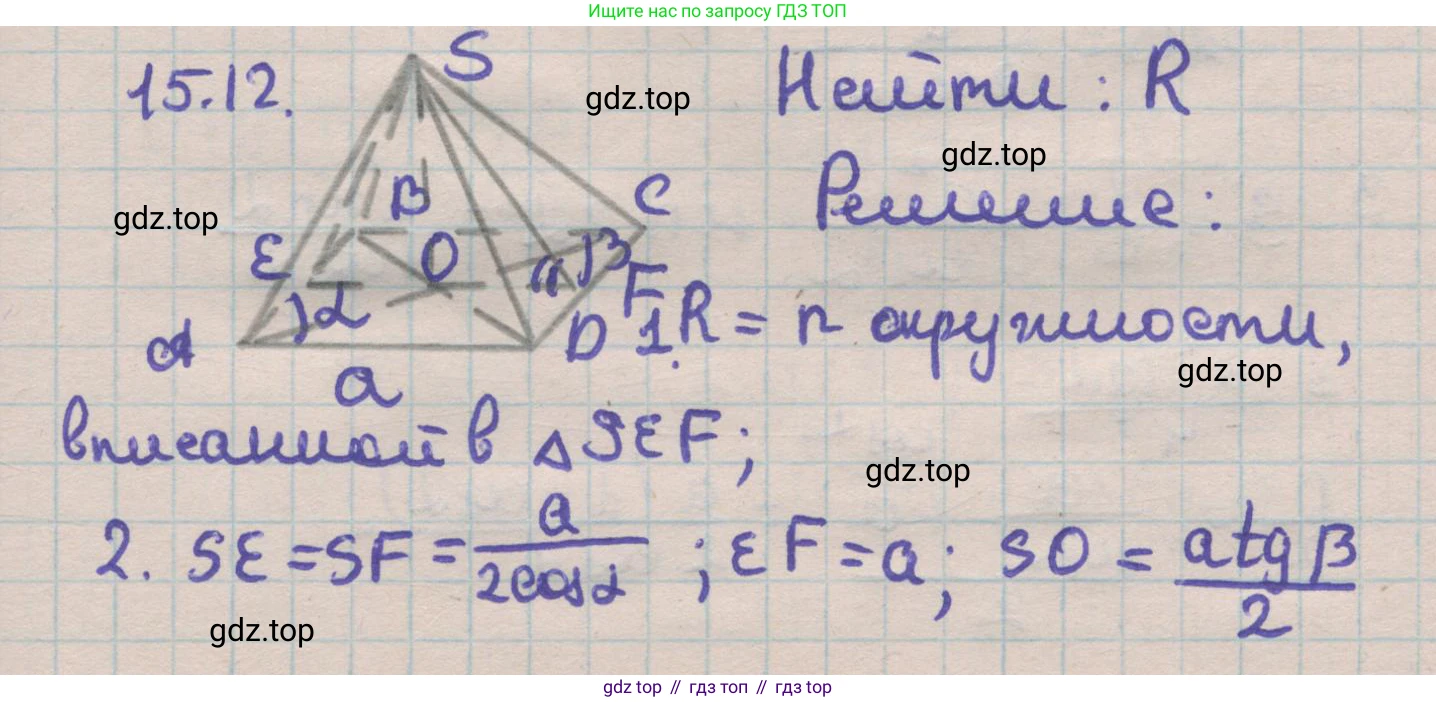 Ищите нас по запросу ГДЗ ТОП
15.12.
S
gdz.top
Найти : R
gdz.top
Решение :
gdz.top
B
C
E
O
β
F
α
A
D
a
1. R = r окружности,
gdz.top
вписанной в ΔSEF;
gdz.top
2. SE = SF = a / 2cosα ; EF = a; SO = a tg β / 2
gdz.top
gdz top // гдз топ // gdz top